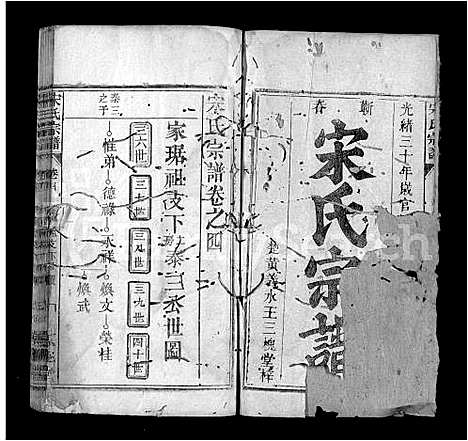 宋氏宗譜
光緒三十年歲官
靳
春
宋氏宗譜
楚黃義水王三槐堂梓
宋氏宗譜卷之四
家琚祖支下泰三公世圖
三六世
三七世
三八世
三九世
四十世
泰三
之子
惟弟
德祿
永祥
煥文
榮桂
煥武
宋氏宗譜